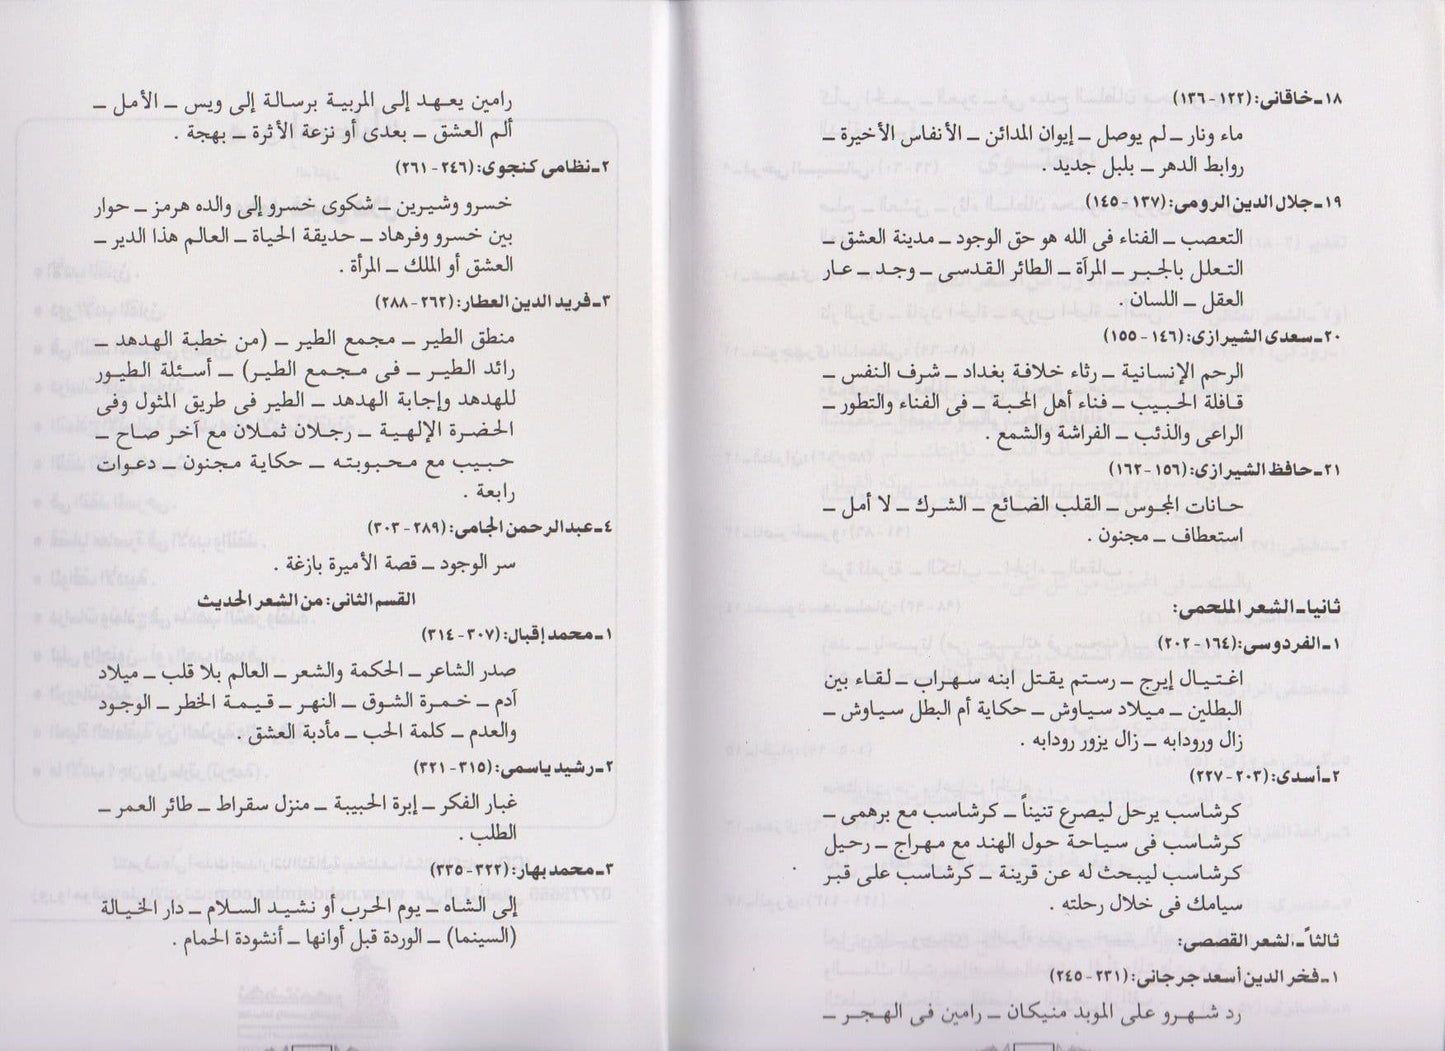 ١٨ـ خاقانى: (١٢٢ - ١٣٦)
ماء ونار ـ لم يوصل ـ إيوان المدائن ـ الأنفاس الأخيرة ـ
روابط الدهر ـ بلبل جديد .
١٩ـ جلال الدين الرومى: (١٣٧ - ١٤٥)
التعصب ـ الفناء فى الله هو حق الوجود ـ مدينة العشق ـ
التعلل بالجبر ـ المرآة ـ الطائر القدسى ـ وجد ـ عار
العقل ـ اللسان .
٢٠ـ سعدى الشيرازى: (١٤٦ - ١٥٥)
الرحم الإنسانية ـ رثاء خلافة بغداد ـ شرف النفس ـ
قافلة الحبيب ـ فناء أهل المحبة ـ فى الفناء والتطور ـ
الراعى والذئب ـ الفراشة والشمع .
٢١ـ حافظ الشيرازى: (١٥٦ - ١٦٢)
حانات المجوس ـ القلب الضائع ـ الشرك ـ لا أمل ـ
استعطاف ـ مجنون .
ثانيا ـ الشعر الملحمى:
١ـ الفردوسى: (١٦٤ - ٢٠٢)
اغتيال إيرج ـ رستم يقتل ابنه سهراب ـ لقاء بين
البطلين ـ ميلاد سياوش ـ حكاية أم البطل سياوش ـ
زال ورودابه ـ زال يزور رودابه .
٢ـ أسدى: (٢٠٣ - ٢٢٧)
كرشاسب يرحل ليصرع تنيناً ـ كرشاسب مع برهمى ـ
كرشاسب فى سياحة حول الهند مع مهراج ـ رحيل
كرشاسب ليبحث له عن قرينة ـ كرشاسب على قبر
سيامك فى خلال رحلته .
ثالثاً ـ الشعر القصصى:
١ـ فخر الدين أسعد جرجانى: (٢٣١ - ٢٤٥)
رد شهرو على الموبد منيكان ـ رامين فى الهجر ـ
رامين يعهد إلى المربية برسالة إلى ويس ـ الأمل ـ
ألم العشق ـ بعدى أو نزعة الأثرة ـ بهجة .
٢ـ نظامى كنجوى: (٢٤٦ - ٢٦١)
خسرو وشيرين ـ شكوى خسرو إلى والده هرمز ـ حوار
بين خسرو وفرهاد ـ حديقة الحياة ـ العالم هذا الدير ـ
العشق أو الملك ـ المرأة .
٣ـ فريد الدين العطار: (٢٦٢ - ٢٨٨)
منطق الطير ـ مجمع الطير ـ (من خطبة الهدهد ـ
رائد الطير ـ فى مجمع الطير) ـ أسئلة الطيور
للهدهد وإجابة الهدهد ـ الطير فى طريق المثول وفى
الحضرة الإلهية ـ رجلان ثملان مع آخر صاح ـ
حبيب مع محبوبته ـ حكاية مجنون ـ دعوات
رابعة .
٤ـ عبدالرحمن الجامى: (٢٨٩ - ٣٠٣)
سر الوجود ـ قصة الأميرة بازغة .
القسم الثانى: من الشعر الحديث
١ـ محمد إقبال: (٣٠٧ - ٣١٤)
صدر الشاعر ـ الحكمة والشعر ـ العالم بلا قلب ـ ميلاد
آدم ـ خمرة الشوق ـ النهر ـ قيمة الخطر ـ الوجود
والعدم ـ كلمة الحب ـ مأدبة العشق .
٢ـ رشيد ياسمى: (٣١٥ - ٣٢١)
غبار الفكر ـ إبرة الحبيبة ـ منزل سقراط ـ طائر العمر ـ
الطلب .
٣ـ محمد بهار: (٣٢٢ - ٣٣٥)
إلى الشاه ـ يوم الحرب أو نشيد السلام ـ دار الخيالة
(السينما) ـ الوردة قبل أوانها ـ أنشودة الحمام .